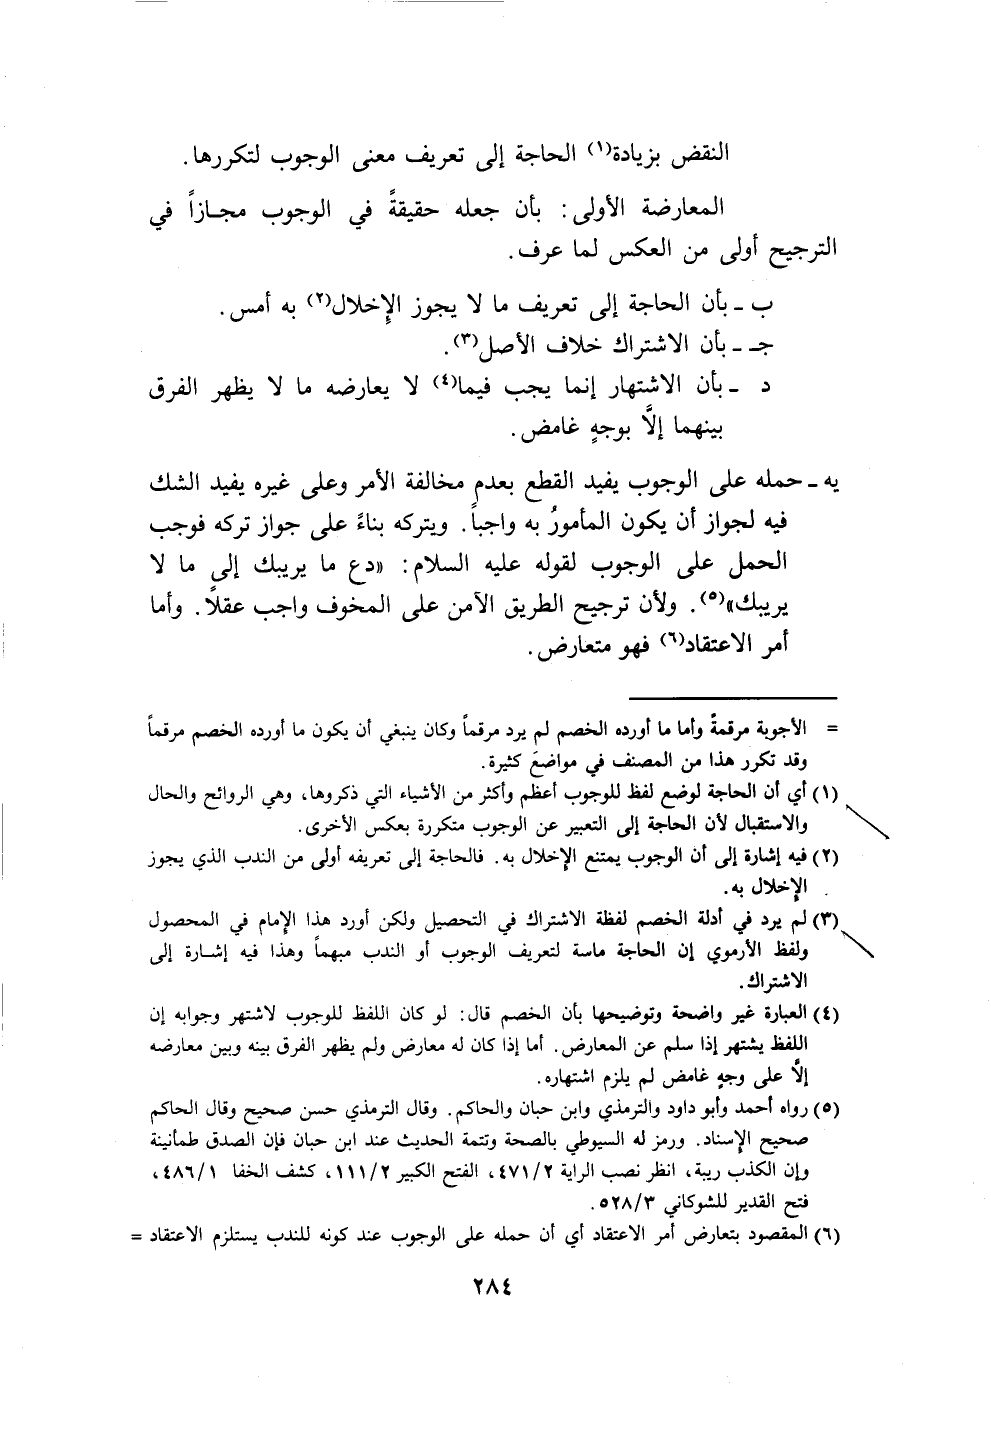 النقض بزيادة(١) الحاجة إلى تعريف معنى الوجوب لتكررها.
المعارضة الأولى: بأن جعله حقيقةً في الوجوب مجازاً في
الترجيح أولى من العكس لما عرف.
ب ـ بأن الحاجة إلى تعريف ما لا يجوز الإخلال(٢) به أمس.
جـ ـ بأن الاشتراك خلاف الأصل(٣).
د ـ بأن الاشتهار إنما يجب فيما(٤) لا يعارضه ما لا يظهر الفرق
بينهما إلاَّ بوجهٍ غامض.
يه ـ حمله على الوجوب يفيد القطع بعدم مخالفة الأمر وعلى غيره يفيد الشك
فيه لجواز أن يكون المأمورُ به واجباً. ويتركه بناءً على جواز تركه فوجب
الحمل على الوجوب لقوله عليه السلام: «دع ما يريبك إلى ما لا
يريبك»(٥). ولأن ترجيح الطريق الآمن على المخوف واجب عقلاً. وأما
أمر الاعتقاد(٦) فهو متعارض.
= الأجوبة مرقمةً وأما ما أورده الخصم لم يرد مرقماً وكان ينبغي أن يكون ما أورده الخصم مرقماً
وقد تكرر هذا من المصنف في مواضعَ كثيرة.
(١) أي أن الحاجة لوضع لفظ للوجوب أعظم وأكثر من الأشياء التي ذكروها، وهي الروائح والحال
والاستقبال لأن الحاجة إلى التعبير عن الوجوب متكررة بعكس الأخرى.
(٢) فيه إشارة إلى أن الوجوب يمتنع الإخلال به. فالحاجة إلى تعريفه أولى من الندب الذي يجوز
الإخلال به.
(٣) لم يرد في أدلة الخصم لفظة الاشتراك في التحصيل ولكن أورد هذا الإمام في المحصول
ولفظ الأرموي إن الحاجة ماسة لتعريف الوجوب أو الندب مبهماً وهذا فيه إشارة إلى
الاشتراك.
(٤) العبارة غير واضحة وتوضيحها بأن الخصم قال: لو كان اللفظ للوجوب لاشتهر وجوابه إن
اللفظ يشتهر إذا سلم عن المعارض. أما إذا كان له معارض ولم يظهر الفرق بينه وبين معارضه
إلاَّ على وجهٍ غامض لم يلزم اشتهاره.
(٥) رواه أحمد وأبو داود والترمذي وابن حبان والحاكم. وقال الترمذي حسن صحيح وقال الحاكم
صحيح الإسناد. ورمز له السيوطي بالصحة وتتمة الحديث عند ابن حبان فإن الصدق طمأنينة
وإن الكذب ريبة، انظر نصب الراية ٤٧١/٢، الفتح الكبير ١١١/٢، كشف الخفا ٤٨٦/١،
فتح القدير للشوكاني ٥٢٨/٣.
(٦) المقصود بتعارض أمر الاعتقاد أي أن حمله على الوجوب عند كونه للندب يستلزم الاعتقاد =
٢٨٤